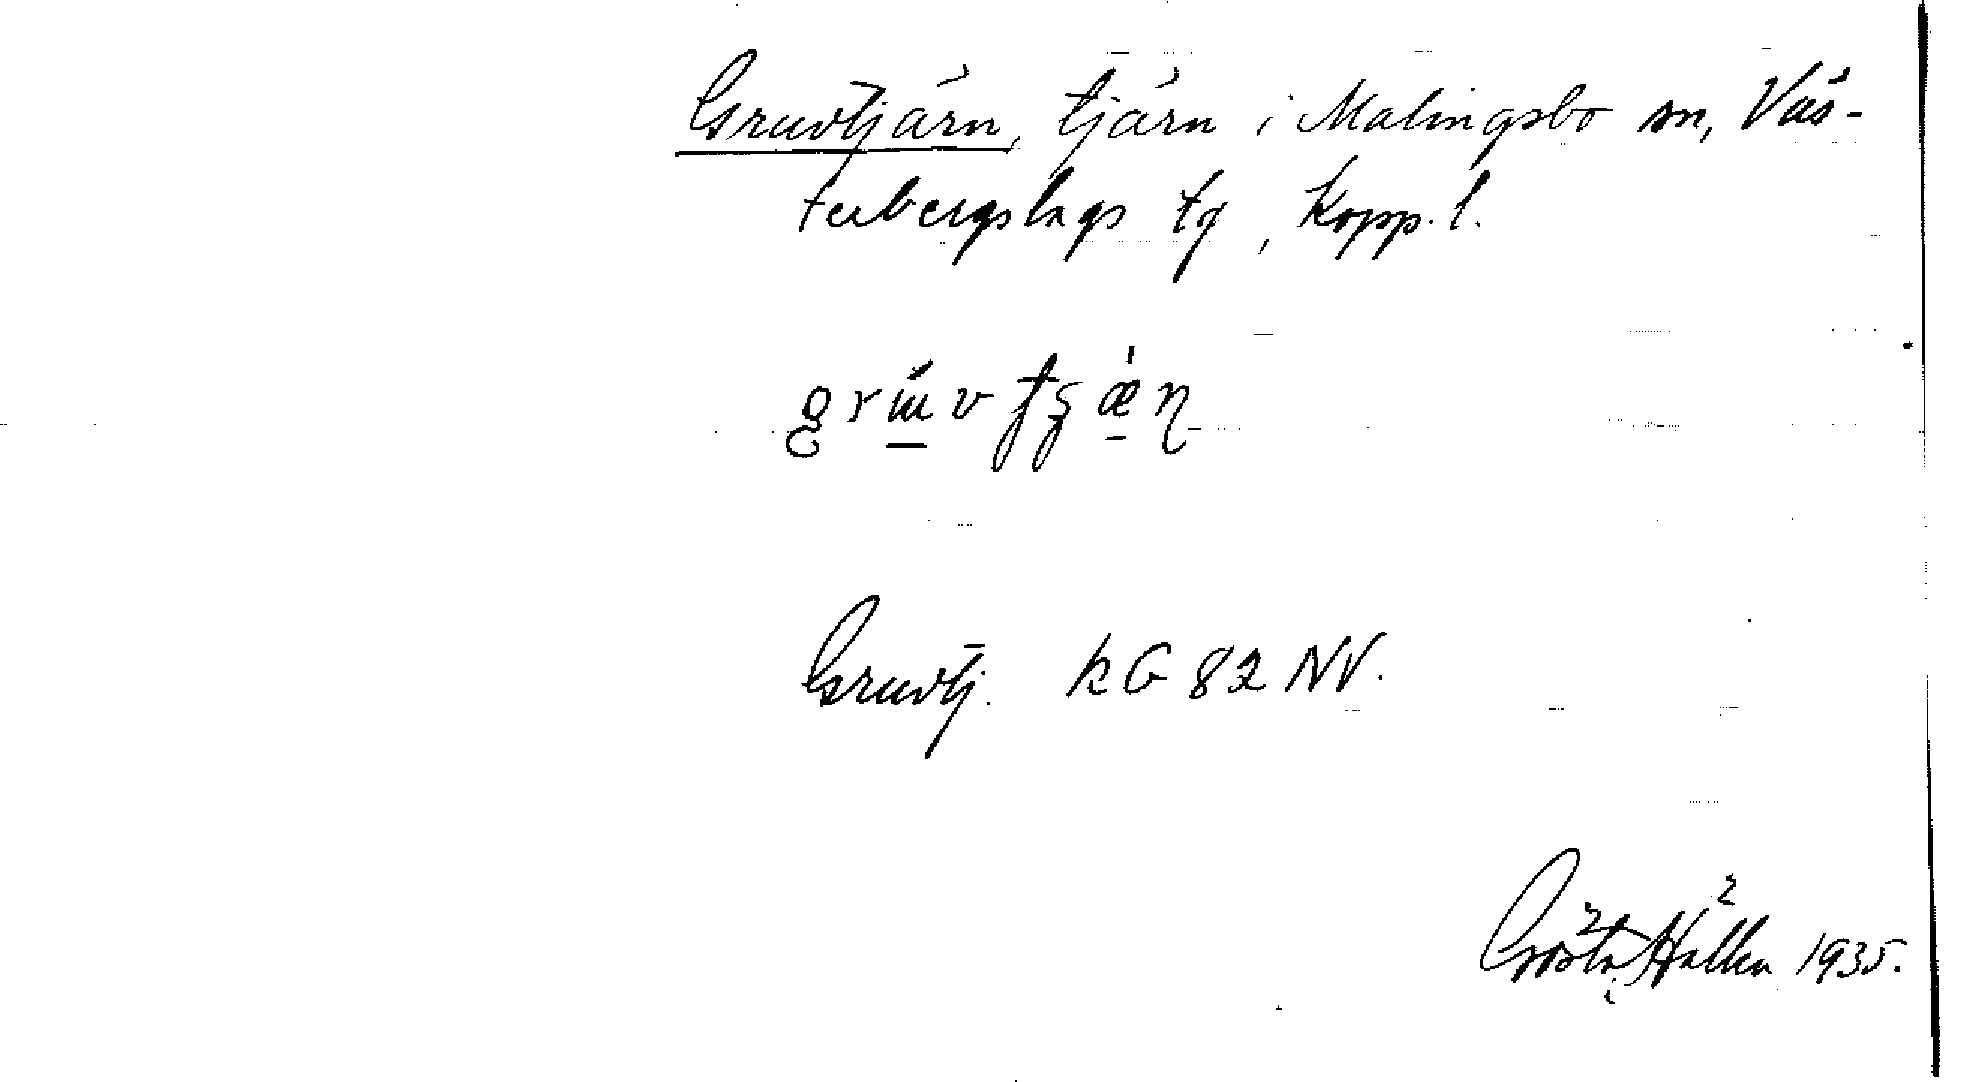 Gruvtjärn, tjärn i Malingsbo sn, Väs-
terbergslags tg, Kopp. l.
Gruvtj. kG 82 NV.
Gösta Hallén 1935.